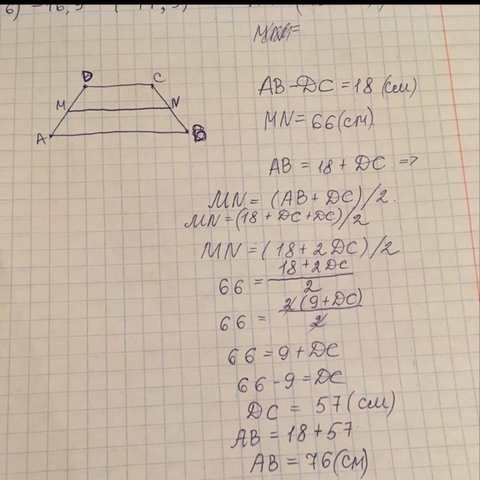 D C
M N
A B
AB-DC=18(см)
MN=66(см)
AB=18+DC =>
MN=(AB+DC)/2.
MN=(18+DC+DC)/2
MN=(18+2DC)/2
66 = 18+2DC / 2
66 = 2(9+DC) / 2
66=9+DC
66-9=DC
DC = 57(см)
AB=18+57
AB=76(см)